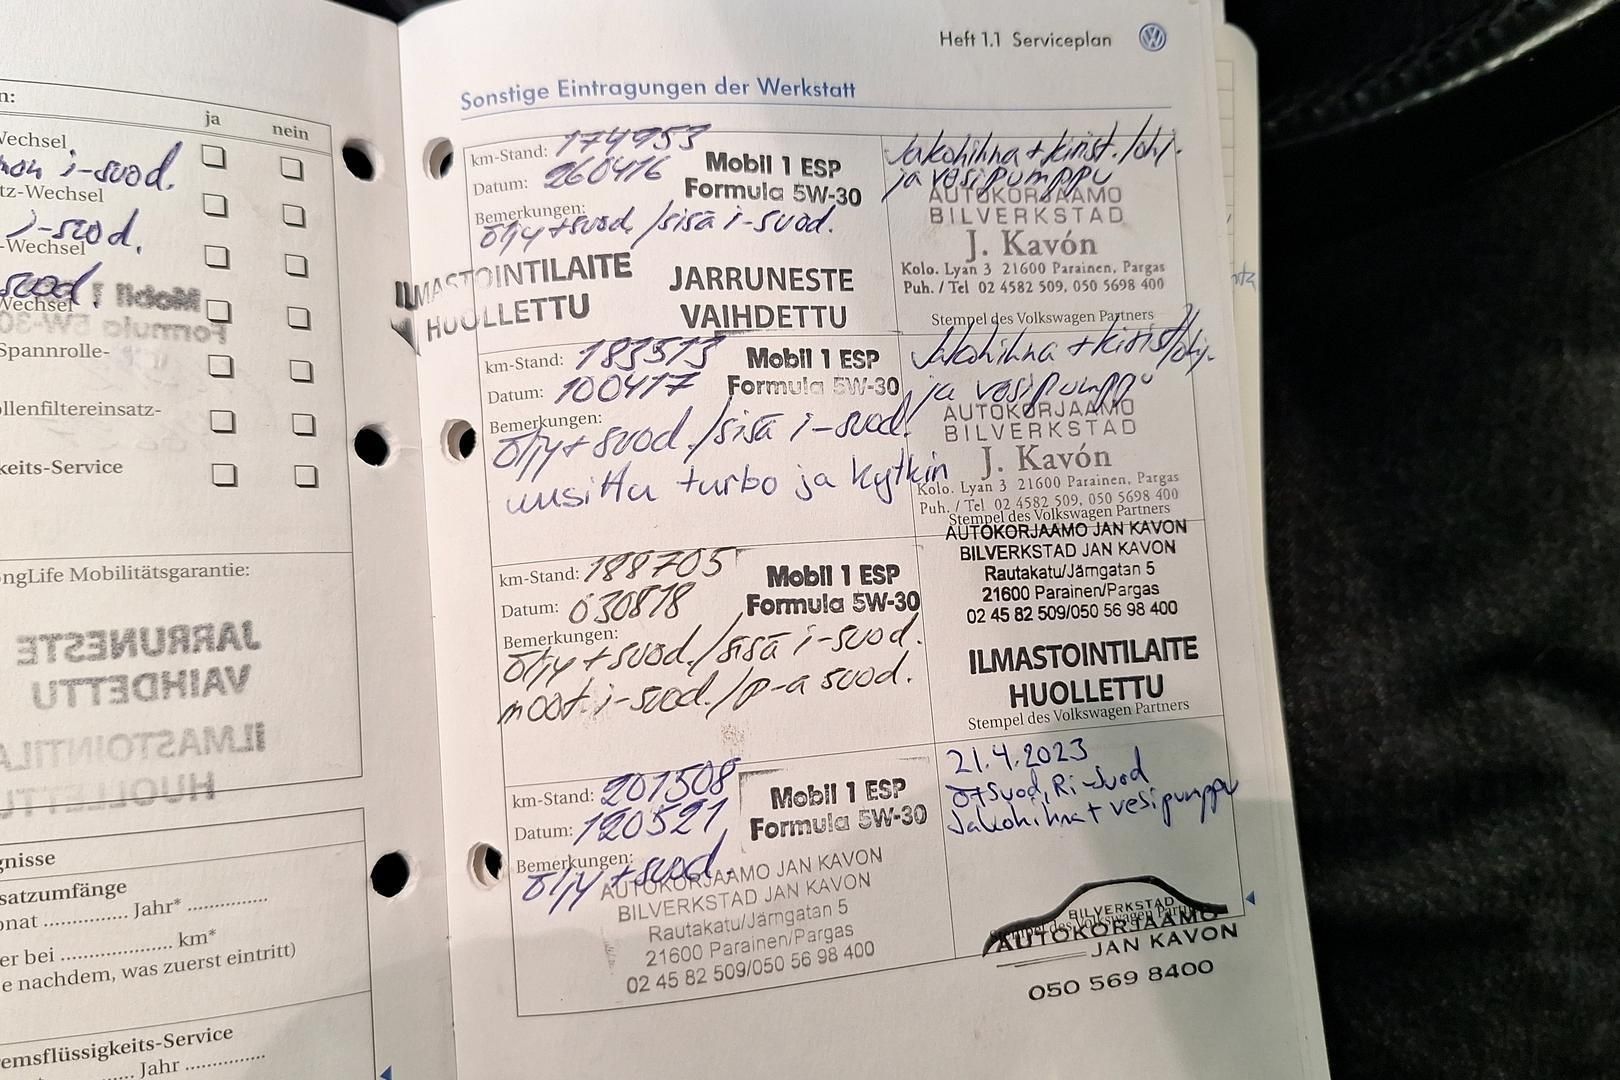 n:
ja nein
Wechsel
mon i-suod.
tz-Wechsel
i-suod.
-Wechsel
suod.
Wechsel
Mobil 1
Formula 5W-30
Spannrolle-
ollenfiltereinsatz-
keits-Service
ongLife Mobilitätsgarantie:
JARRUNESTE
VAIHDETTU
ILMASTOINTILA
HUOLLETTU
gnisse
satzumfänge
onat .............. Jahr* ..............
er bei .................... km*
e nachdem, was zuerst eintritt)
emsflüssigkeits-Service
Jahr ..............
Heft 1.1 Serviceplan
Sonstige Eintragungen der Werkstatt
km-Stand: 174953
Datum: 260416
Mobil 1 ESP
Formula 5W-30
Bemerkungen:
öljy+suod./sisä i-suod.
ILMASTOINTILAITE
HUOLLETTU
JARRUNESTE
VAIHDETTU
Jakohihna + kirist./ohj.
ja vesipumppu
AUTOKORJAAMO
BILVERKSTAD
J. Kavón
Kolo. Lyan 3 21600 Parainen, Pargas
Puh. / Tel 02 4582 509, 050 5698 400
Stempel des Volkswagen Partners
km-Stand: 183513
Datum: 100417
Mobil 1 ESP
Formula 5W-30
Bemerkungen:
öljy+suod./sisä i-suod.
uusittu turbo ja kytkin
Jakohihna + kirist/ohj.
ja vesipumppu
AUTOKORJAAMO
BILVERKSTAD
J. Kavón
Kolo. Lyan 3 21600 Parainen, Pargas
Puh. / Tel 02 4582 509, 050 5698 400
Stempel des Volkswagen Partners
km-Stand: 188705
Datum: 030818
Mobil 1 ESP
Formula 5W-30
Bemerkungen:
öljy+suod./sisä i-suod.
moot.i-suod./p-a suod.
AUTOKORJAAMO JAN KAVON
BILVERKSTAD JAN KAVON
Rautakatu/Järngatan 5
21600 Parainen/Pargas
02 45 82 509/050 56 98 400
ILMASTOINTILAITE
HUOLLETTU
Stempel des Volkswagen Partners
km-Stand: 201508
Datum: 120521
Mobil 1 ESP
Formula 5W-30
Bemerkungen:
öljy+suod.
AUTOKORJAAMO JAN KAVON
BILVERKSTAD JAN KAVON
Rautakatu/Järngatan 5
21600 Parainen/Pargas
02 45 82 509/050 56 98 400
21.4.2023
Ö+Suod, Ri-Suod
Jakohihna + vesipumppu
BILVERKSTAD
Stempel des Volkswagen Partners
AUTOKORJAAMO
JAN KAVON
050 569 8400